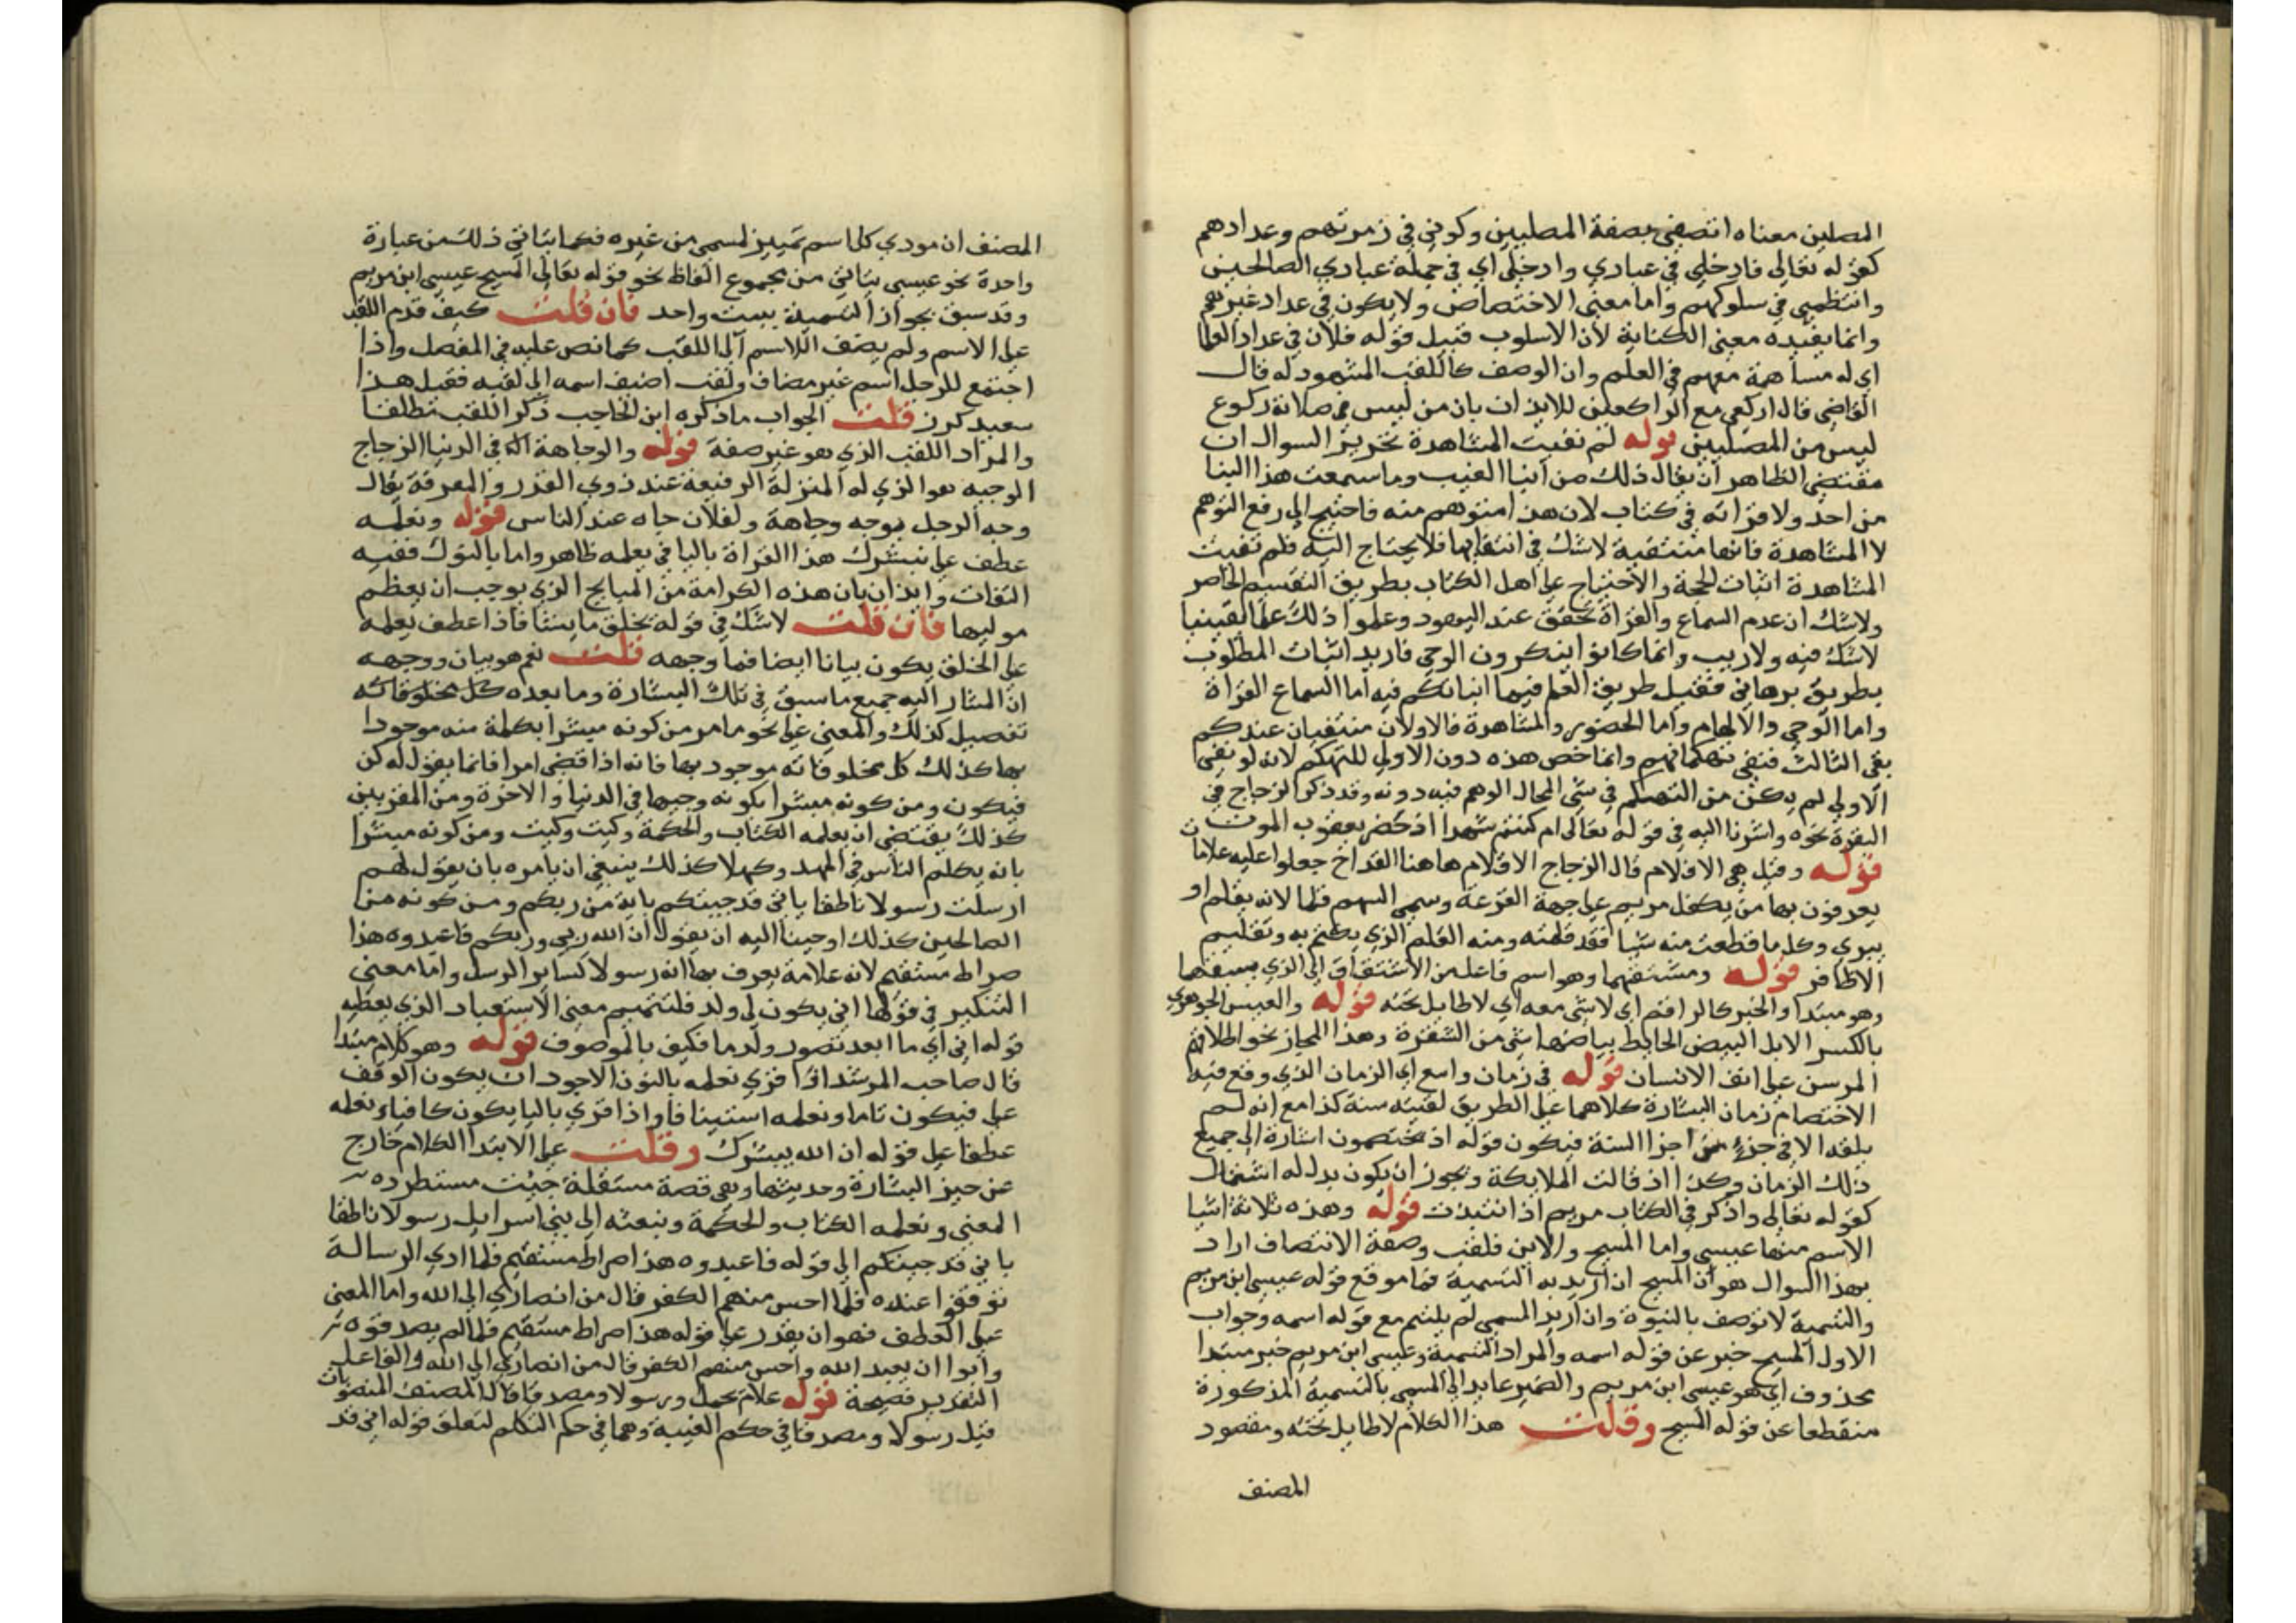 المصلين معناه اتصفي بصفة المصلين وكوني في زمرتهم وعدادهم
كقوله تعالي فادخلي في عبادي وادخلي اي في جملة عبادي الصالحين
وانتظمي في سلوكهم واما معني الاختصاص ولا يكون في عداد غيرهم
وانما يفيده معني الكناية لان الاسلوب قبيل قوله فلان في عداد العلما
اي له مساهمة معهم في العلم وان الوصف كاللقب المشهود له قال
القاضي قال اركعي مع الراكعين للايذان بان من ليس في صلاته ركوع
ليس من المصلين قوله لم نفيت المشاهدة تحرير السوال ان
مقتضي الظاهر ان يقال ذلك من انبا الغيب وما سمعت هذا النبا
من احد ولا قراته في كتاب لان هذا متوهم منه فاحتيج الي رفع التوهم
لا المشاهدة فانها منتفية لا شك في انتفايها فلا يحتاج اليه فلم نفيت
المشاهدة اثبات الحجة والاحتجاج علي اهل الكتاب بطريق التقسيم الحاصر
ولا شك ان عدم السماع والقراة محقق عند اليهود وعلموا ذلك علما يقينيا
لا شك فيه ولا ريب وانما كانوا ينكرون الوحي فاريد اثبات المطلوب
بطريق برهاني فقيل طريق العلم فيما انباتكم فيه اما السماع القراة
واما الوحي والالهام واما الحضور والمشاهدة فالاولان منتفيان عندكم
بقي الثالث فنفي تهكما بهم وانما خص هذه دون الاولي للتهكم لانه لو نفي
الاولي لم يكن من التهكم في شي المحال الوهم فيه دونه وقد ذكر الزجاج في
البقرة نحوه واشرنا اليه في قوله تعالي ام كنتم شهدا اذ حضر يعقوب الموت
قوله وقيل هي الاقلام قال الزجاج الاقلام هاهنا القداح جعلوا عليه علامات
يعرفون بها من يكفل مريم علي جهة القرعة وسمي السهم قلما لانه يقلم او
يبري وكل ما قطعت منه شيا فقد قلمته ومنه القلم الذي يكتب به وتقليم
الاظافر قوله ومشتقهما وهو اسم فاعل من الاشتقاق الي الذي يشتقها
وهو مبتدا والخبر كالراقم اي لا شي معه اي لا طايل تحته قوله والعيس الجوهري
بالكسر الابل البيض الخالط بياضها شي من الشقرة وهذا المجاز نحو اطلاقهم
المرسن علي انف الانسان قوله في زمان واسع اي الزمان الذي وقع فيه
الاختصام زمان البشارة كلاهما علي الطريق لقيته سنة كذا مع انه لم
يلقه الا في جزء من اجزا السنة فيكون قوله اذ يختصمون اشارة الي جميع
ذلك الزمان وكذا اذ قالت الملايكة ويجوز ان يكون بدل له اشتمال
كقوله تعالي واذكر في الكتاب مريم اذ انتبذت قوله وهذه ثلاثة اشيا
الاسم منها عيسي واما المسيح والابن فلقب وصفة الانتصاف اراد
بهذا السوال هو ان المسيح ان اريد به التسمية فما موقع قوله عيسي ابن مريم
والتسمية لا توصف بالنبوة وان اريد المسمي لم يلتيم مع قوله اسمه وجواب
الاول المسيح خبر عن قوله اسمه والمراد التسمية وعيسي ابن مريم خبر مبتدا
محذوف اي هو عيسي ابن مريم والضمير عايد الي المسمي بالتسمية المذكورة
منقطعا عن قوله المسيح وقلت هذا الكلام لا طايل تحته ومقصود
المصنف
المصنف ان مودي كل اسم تمييز لمسمي من غيره فكما يتاتي ذلك من عبارة
واحدة نحو عيسي يتاتي من مجموع الفاظ نحو قوله تعالي المسيح عيسي ابن مريم
وقد سبق بجواز التسمية ببيت واحد فان قلت كيف قدم اللقب
علي الاسم ولم يضف الاسم الي اللقب كما نص عليه في المفصل واذا
اجتمع للرجل اسم غير مضاف ولقب اضيف اسمه الي لقبه فقيل هذا
سعيد كرز قلت الجواب ما ذكره ابن الحاجب ذكر اللقب مطلقا
والمراد اللقب الذي هو غير صفة قوله والوجاهة الا في الدنيا الزجاج
الوجيه هو الذي له المنزلة الرفيعة عند ذوي القدر والمعرفة يقال
وجه الرجل يوجه وجاهة ولفلان جاه عند الناس قوله ونعلمه
عطف علي نبشرك هذا القراة باليا في يعلمه ظاهر واما بالنون ففيه
التفات وايذان بان هذه الكرامة من المنايح الذي يوجب ان يعظم
موليها فان قلت لا شك في قوله يخلق ما يشا فاذا عطف يعلمه
علي الخلق يكون بيانا ايضا فما وجهه قلت نعم هو بيان ووجهه
ان المشار اليه جميع ما سبق في تلك البشارة وما بعده كل مخلوقاته
تفصيل كذلك والمعني علي نحو ما مر من كونه مبشرا بكلمة منه موجودا
بها كذلك كل مخلوقاته موجود بها فانه اذا قضي امرا فانما يقول له كن
فيكون ومن كونه مبشرا بكونه وجيها في الدنيا والاخرة ومن المقربين
كذلك يقتضي ان يعلمه الكتاب والحكمة وكيت وكيت ومن كونه مبشرا
بانه يكلم الناس في المهد وكهلا كذلك ينبغي ان يامره بان يقول لهم
ارسلت رسولا ناطقا باني قد جيتكم باية من ربكم ومن كونه من
الصالحين كذلك اوحينا اليه ان يقول ان الله ربي وربكم فاعبدوه هذا
صراط مستقيم لانه علامة يعرف بها انه رسولا كساير الرسل واما معني
التنكير في قولها اني يكون لي ولد فلتتميم معني الاستبعاد الذي يعطيه
قوله اني اي ما ابعد تصور ولد ما فكيف بالموصوف قوله وهو كلام مبتدا
قال صاحب المرشد اذا قري نعلمه بالنون الاجود ان يكون الوقف
علي فيكون تاما ونعلمه استينافا واذا قري باليا يكون كافيا ويعلمه
عطفا علي قوله ان الله يبشرك وقلت علي الابتدا الكلام خارج
عن حيز البشارة وحديثها وهي قصة مستقلة جيت مستطردة
المعني ونعلمه الكتاب والحكمة ونبعثه الي بني اسرايل رسولا ناطقا
باني قد جيتكم الي قوله فاعبدوه هذا صراط مستقيم فلما ادي الرسالة
توقفوا عنده فلما احس منهم الكفر قال من انصاري الي الله واما المعني
علي العطف فهو ان يقدر علي قوله هذا صراط مستقيم فلما لم يصدقوه
وابوا ان يعبد الله واحس منهم الكفر قال من انصاري الي الله والفا علي
التقدير فصيحة قوله علام تحمل ورسولا ومصدقا قال المصنف المنصوبات
قبل رسولا ومصدقا في حكم الغيبة وهما في حكم التكلم لتعلق قوله اني قد